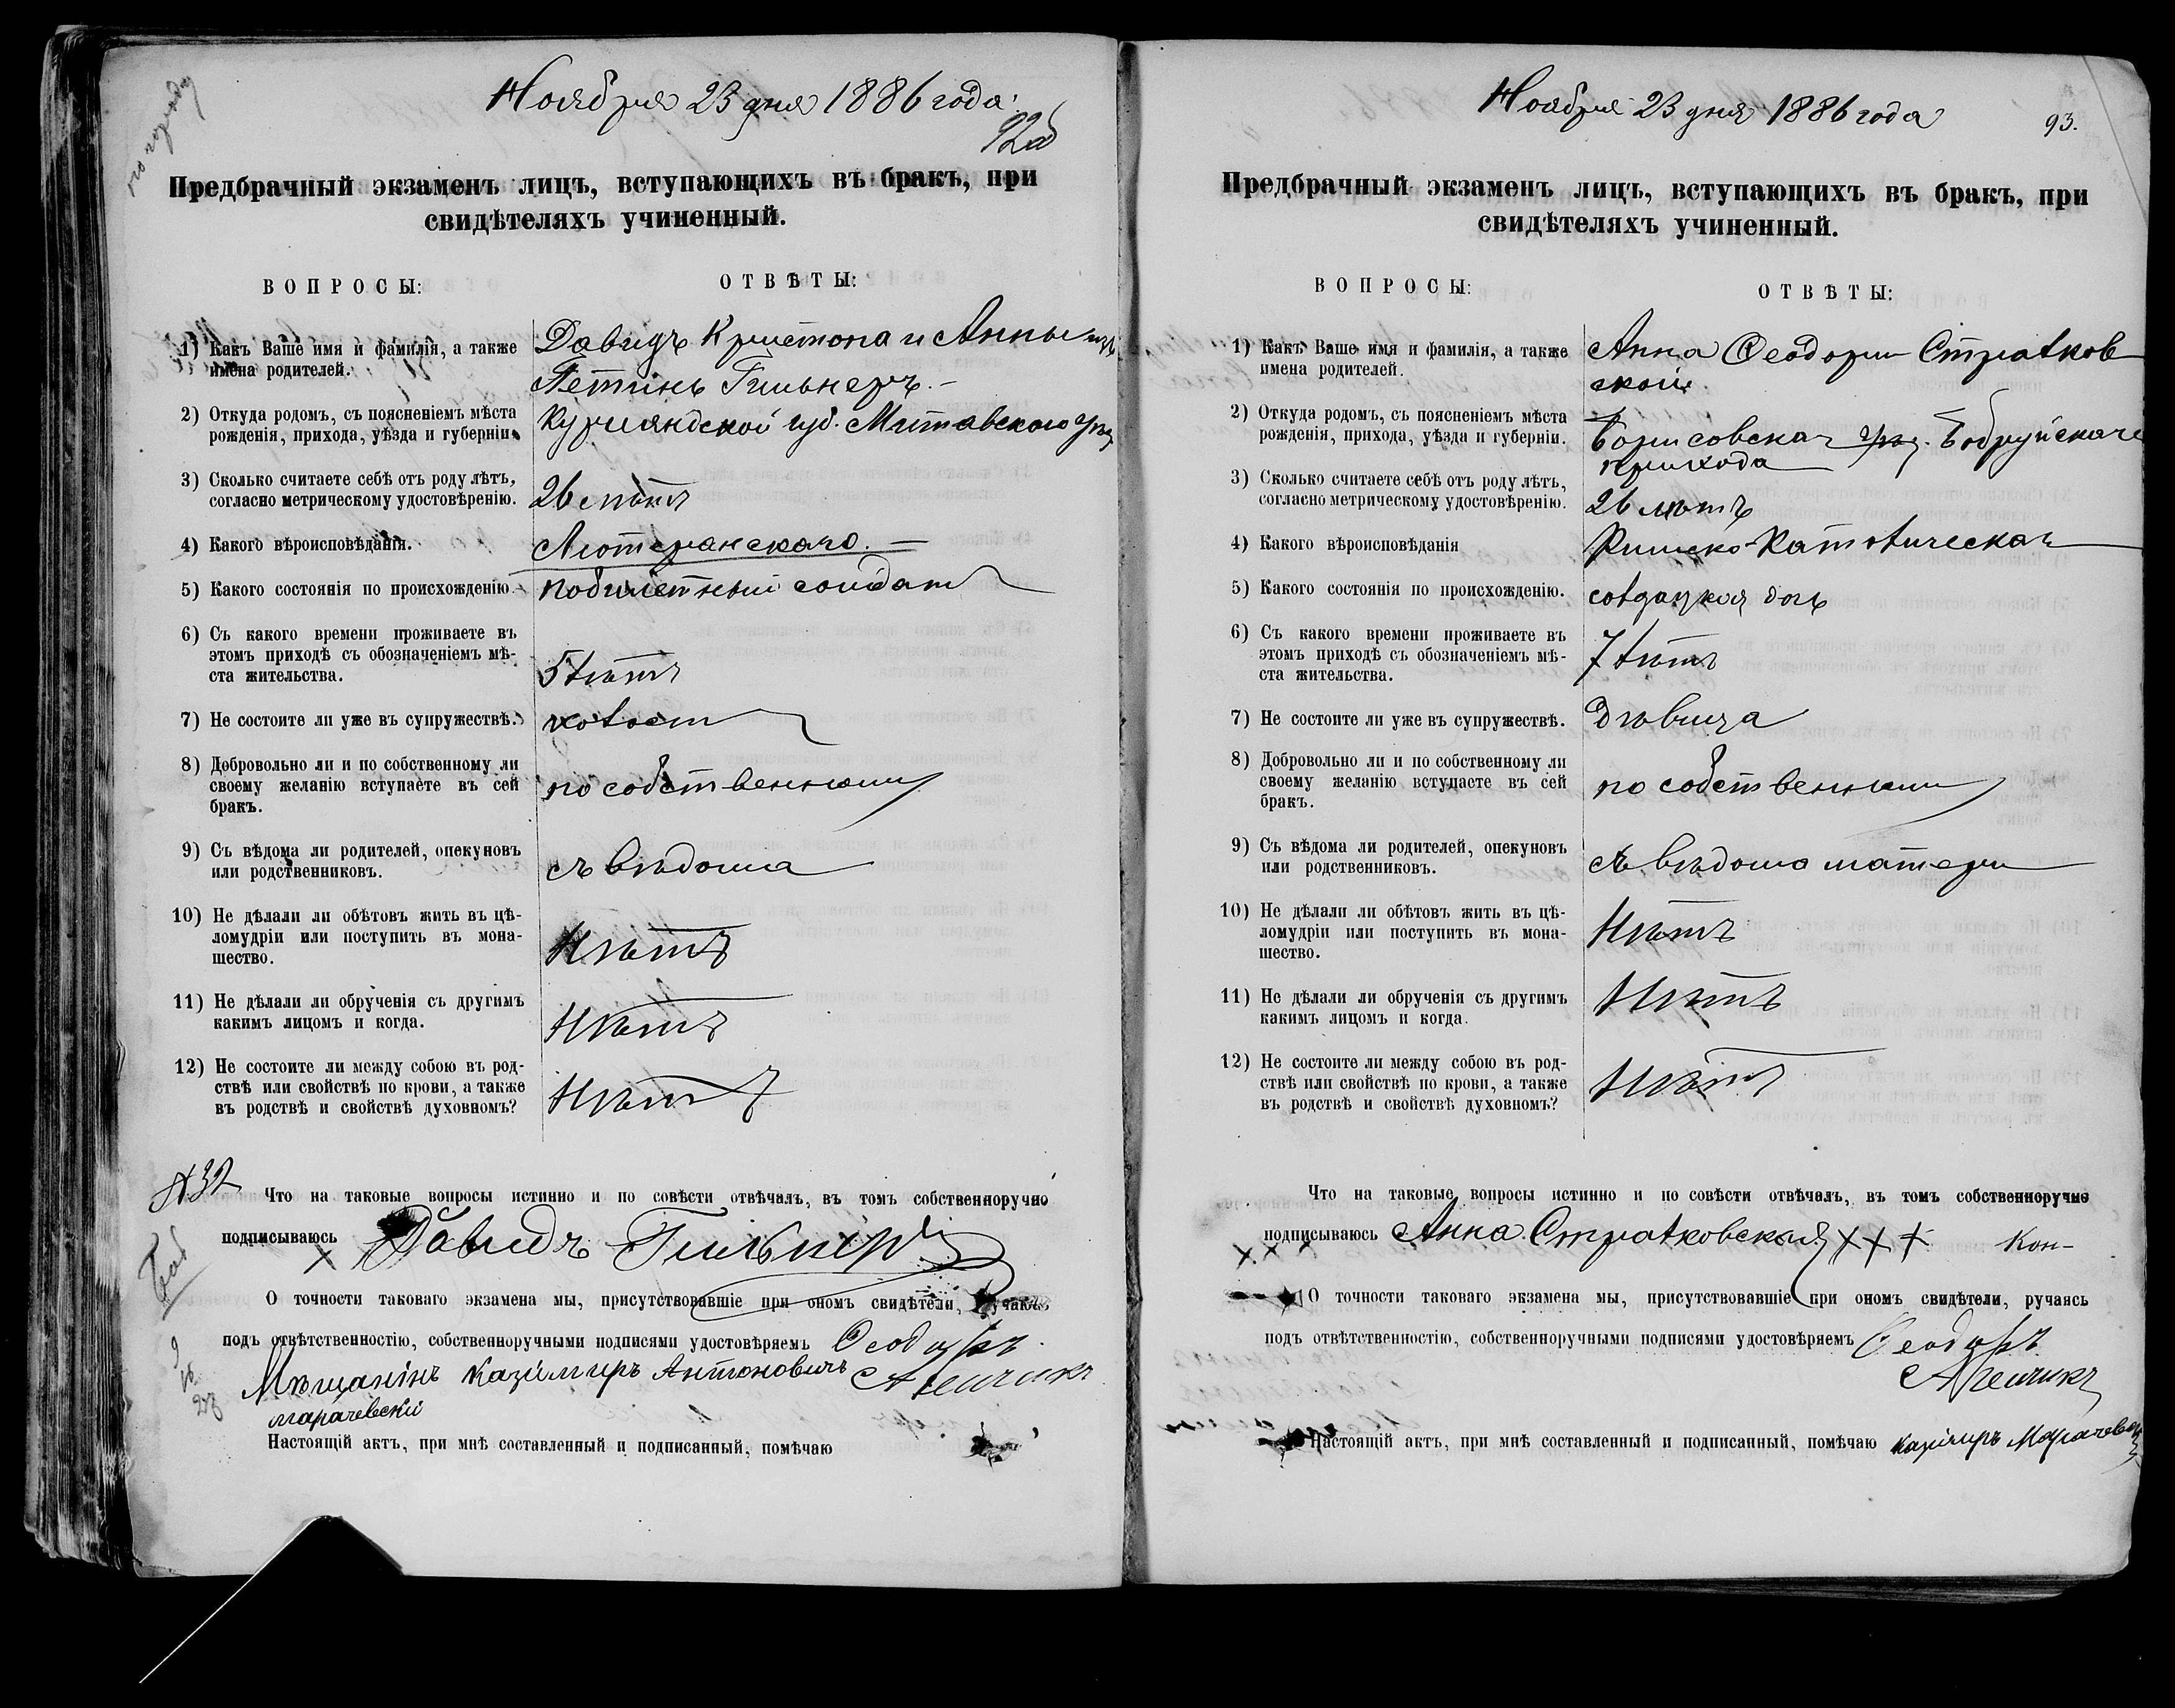 Ноября 23 дня 1886 года.
92об
Предбрачный экзаменъ лицъ, вступающихъ въ бракъ, при
свидѣтеляхъ учиненный.
ВОПРОСЫ:
ОТВѢТЫ:
1) Какъ Ваше имя и фамилія, а также
имена родителей.
Давидъ Кристопа и Анны изъ
Петтинь Гильнеръ. –
2) Откуда родомъ, съ поясненіемъ мѣста
рожденія, прихода, уѣзда и губерніи.
Курляндской губ. Митавского уѣз
3) Сколько считаете себѣ отъ роду лѣтъ,
согласно метрическому удостовѣренію.
26 лѣтъ
4) Какого вѣроисповѣданія.
Лютеранскаго. –
5) Какого состоянія по происхожденію.
побилетный солдат
6) Съ какого времени проживаете въ
этомъ приходѣ съ обозначеніемъ мѣ-
ста жительства.
5 лѣтъ
7) Не состоите ли уже въ супружествѣ.
холост
8) Добровольно ли и по собственному ли
своему желанію вступаете въ сей
бракъ.
по собственному
9) Съ вѣдома ли родителей, опекуновъ
или родственниковъ.
съ вѣдома
10) Не дѣлали ли обѣтовъ жить въ цѣ-
ломудріи или поступить въ мона-
шество.
Нѣтъ
11) Не дѣлали ли обрученія съ другимъ
какимъ лицомъ и когда.
Нѣтъ
12) Не состоите ли между собою въ род-
ствѣ или свойствѣ по крови, а также
въ родствѣ и свойствѣ духовномъ?
Нѣтъ
Что на таковые вопросы истинно и по совѣсти отвѣчалъ, въ томъ собственноручно
подписываюсь Давидъ Гильнеръ
О точности таковаго экзамена мы, присутствовавшіе при ономъ свидѣтели, ручаясь
подъ отвѣтственностію, собственноручными подписями удостовѣряемъ Ѳеодоръ
Мѣщанінъ Казіміръ Антоновичъ
марачевскі
Настоящій актъ, при мнѣ составленный и подписанный, помѣчаю
Ноября 23 дня 1886 года
93.
Предбрачный экзаменъ лицъ, вступающихъ въ бракъ, при
свидѣтеляхъ учиненный.
ВОПРОСЫ:
ОТВѢТЫ:
1) Какъ Ваше имя и фамилія, а также
имена родителей.
Анна Ѳеодоры Стралков
ской
2) Откуда родомъ, съ поясненіемъ мѣста
рожденія, прихода, уѣзда и губерніи.
Борисовская уѣз. Бобруйскаго
прихода
3) Сколько считаете себѣ отъ роду лѣтъ,
согласно метрическому удостовѣренію.
26 лѣтъ
4) Какого вѣроисповѣданія
Римско-Католическая
5) Какого состоянія по происхожденію.
солдацкая дочь
6) Съ какого времени проживаете въ
этомъ приходѣ съ обозначеніемъ мѣ-
ста жительства.
7 лѣтъ
7) Не состоите ли уже въ супружествѣ.
Дѣвица
8) Добровольно ли и по собственному ли
своему желанію вступаете въ сей
бракъ.
по собственному
9) Съ вѣдома ли родителей, опекуновъ
или родственниковъ.
съ вѣдома матери
10) Не дѣлали ли обѣтовъ жить въ цѣ-
ломудріи или поступить въ мона-
шество.
Нѣтъ
11) Не дѣлали ли обрученія съ другимъ
какимъ лицомъ и когда.
Нѣтъ
12) Не состоите ли между собою въ род-
ствѣ или свойствѣ по крови, а также
въ родствѣ и свойствѣ духовномъ?
Нѣтъ
Что на таковые вопросы истинно и по совѣсти отвѣчалъ, въ томъ собственноручно
подписываюсь Анна Стралковская +++
О точности таковаго экзамена мы, присутствовавшіе при ономъ свидѣтели, ручаясь
подъ отвѣтственностію, собственноручными подписями удостовѣряемъ Ѳеодоръ
Настоящій актъ, при мнѣ составленный и подписанный, помѣчаю Казіміръ Марачевскі